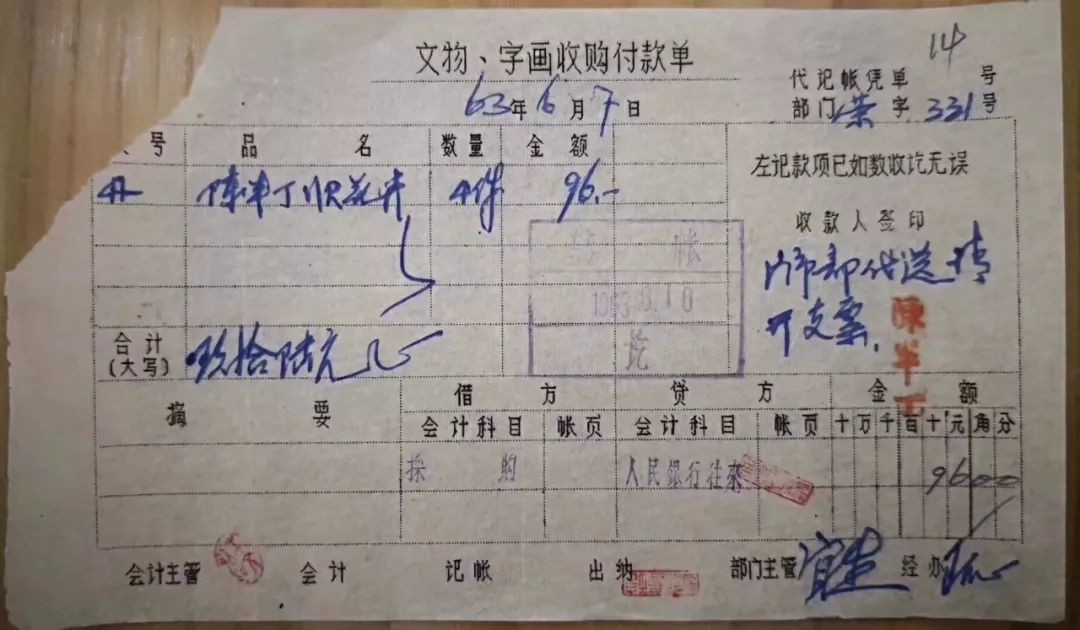 文物、字画收购付款单
14
代记帐凭单 号
63年6月7日
部门 荣 字 331号
号 品名 数量 金额
左记款项已如数收讫无误
陈半丁 花卉 4件 96.-
收款人签印
帐
门市部代送请
开支票.
陳半丁
1963.6.10
讫
合计
(大写) 玖拾陆元
摘要 借方 贷方 金额
会计科目 帐页 会计科目 帐页 十万千百十元角分
採购 人民银行往来 9600
会计主管 会计 记帐 出纳 部门主管 经办